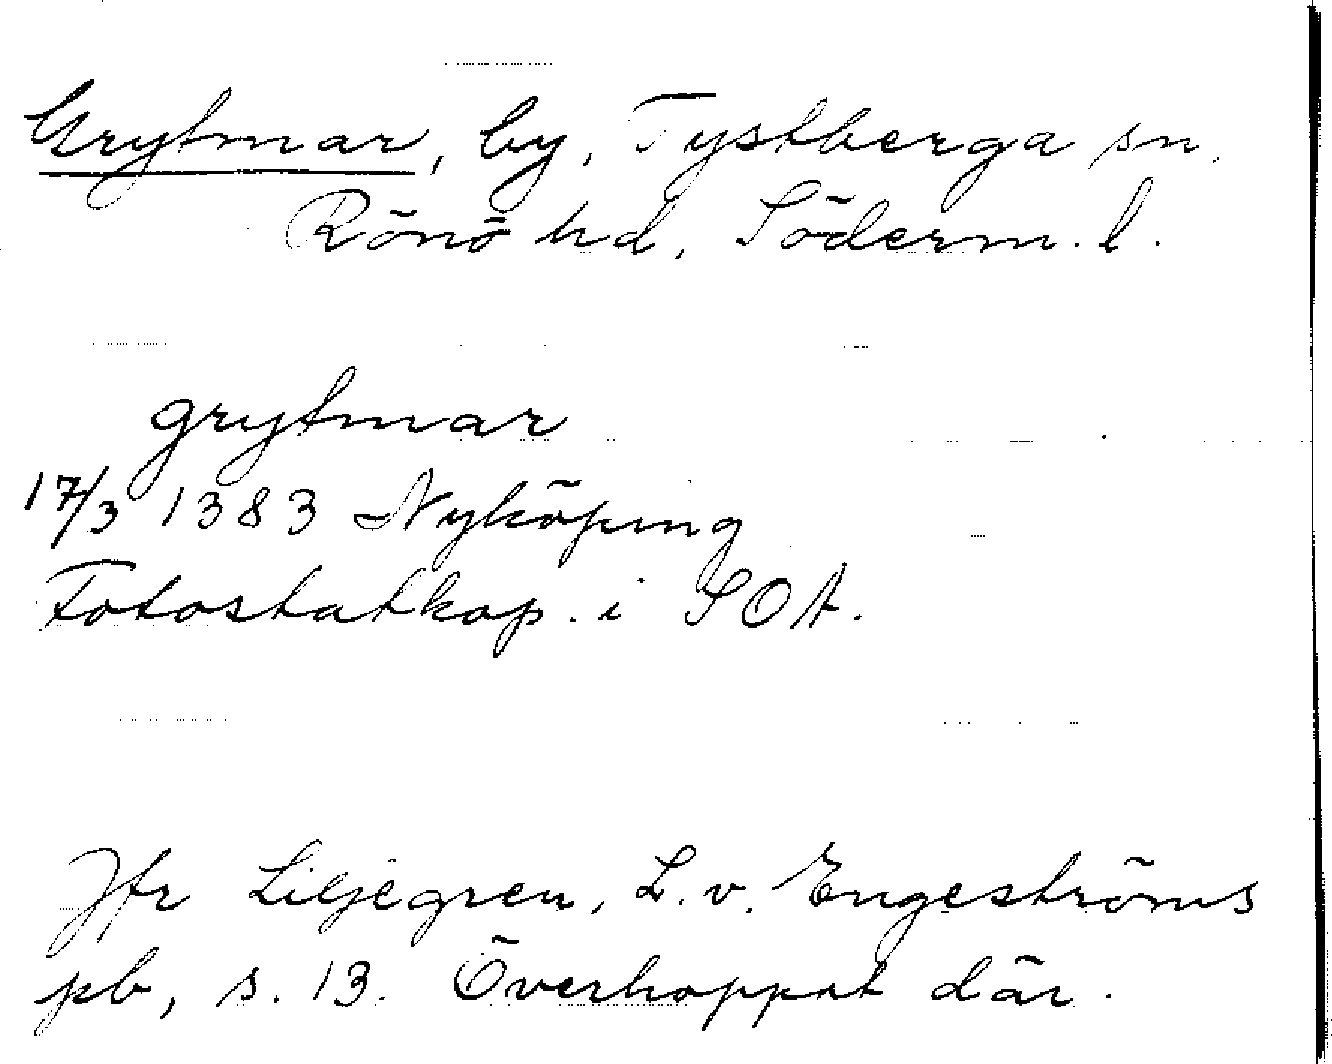 Grytmar, by, Tystberga sn.
Rönö hd, Söderm. l.
grytmar
17/3 1383 Nyköping
Fotostatkop. i SOA.
Jfr Liljegren, L. v. Engeströms
pb, s. 13. Överhoppat där.